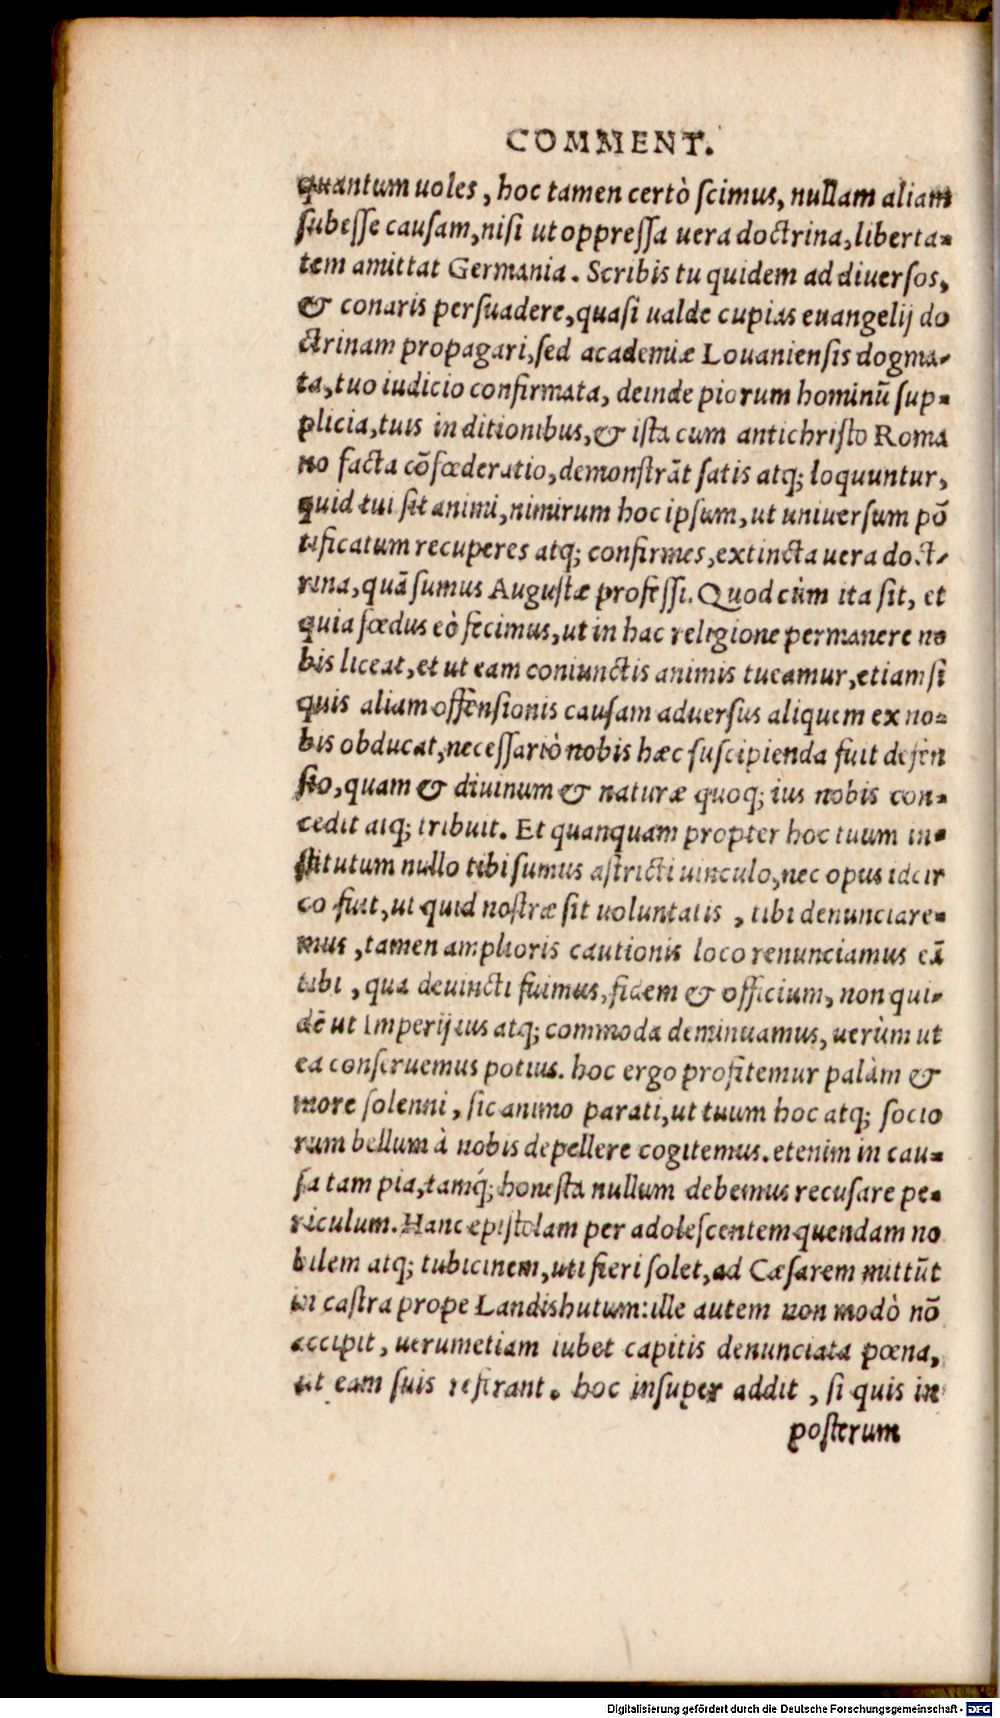 COMMENT.
quantum uoles, hoc tamen certò ſcimus, nullam aliam
ſubeſſe cauſam, niſi ut oppreſſa uera doctrina, liberta-
tem amittat Germania. Scribis tu quidem ad diuerſos,
& conaris perſuadere, quaſi ualde cupias euangelij do
ctrinam propagari, ſed academiæ Louanienſis dogma-
ta, tuo iudicio confirmata, deinde piorum hominũ ſup-
plicia, tuis in ditionibus, & iſta cum antichriſto Roma
no facta cõfœderatio, demonſtrãt ſatis atq; loquuntur,
quid tui ſit animi, nimirum hoc ipſum, ut uniuerſum põ
tificatum recuperes atq; confirmes, extincta uera doct-
rina, quã ſumus Auguſtæ profeſſi. Quod cùm ita ſit, et
quia fœdus eò fecimus, ut in hac religione permanere no
bis liceat, et ut eam coniunctis animis tueamur, etiam ſi
quis aliam offenſionis cauſam aduerſus aliquem ex no-
bis obducat, neceſſariò nobis hæc ſuſcipienda fuit defen
ſio, quam & diuinum & naturæ quoq; ius nobis con-
cedit atq; tribuit. Et quanquam propter hoc tuum in-
ſtitutum nullo tibi ſumus aſtricti uinculo, nec opus idcir
co fuit, ut quid noſtræ ſit uoluntatis, tibi denunciare-
mus, tamen amplioris cautionis loco renunciamus eã
tibi, qua deuincti fuimus, fidem & officium, non qui-
dẽ ut Imperij ius atq; commoda deminuamus, uerùm ut
ea conſeruemus potius. hoc ergo profitemur palàm &
more ſolenni, ſic animo parati, ut tuum hoc atq; ſocio
rum bellum à nobis depellere cogitemus. etenim in cau-
ſa tam pia, tamq́; honeſta nullum debemus recuſare pe-
riculum. Hanc epiſtolam per adoleſcentem quendam no
bilem atq; tubicinem, uti fieri ſolet, ad Cæſarem mittũt
in caſtra prope Landishutum: ille autem non modò nõ
accipit, uerumetiam iubet capitis denunciata pœna,
ut eam ſuis referant. hoc inſuper addit, ſi quis in
poſterum
Digitalisierung gefördert durch die Deutsche Forschungsgemeinschaft - DFG